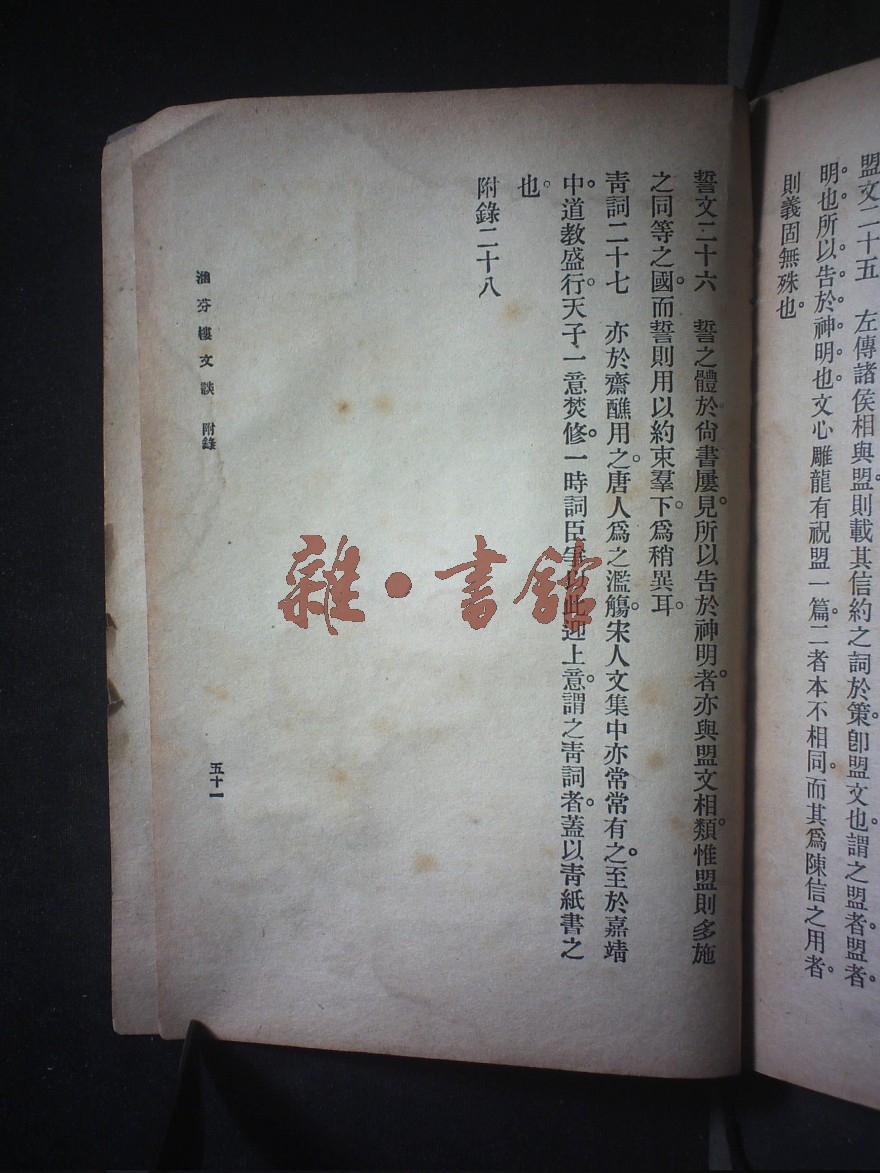 盟文二十五　左傳諸侯相與盟。則載其信約之詞於策。卽盟文也。謂之盟者。盟者。
明也。所以告於神明也。文心雕龍有祝盟一篇。二者本不相同。而其爲陳信之用者。
則義固無殊也。
誓文二十六　誓之體。於尙書屢見。所以告於神明者。亦與盟文相類。惟盟則多施
之同等之國。而誓則用以約束羣下。爲稍異耳。
靑詞二十七　亦於齋醮用之。唐人爲之濫觴。宋人文集中亦常常有之。至於嘉靖
中。道教盛行。天子一意焚修。一時詞臣爭以此迎上意。謂之靑詞者。蓋以靑紙書之
也。
附錄二十八
涵芬樓文談　附錄
五十一
雜·書館